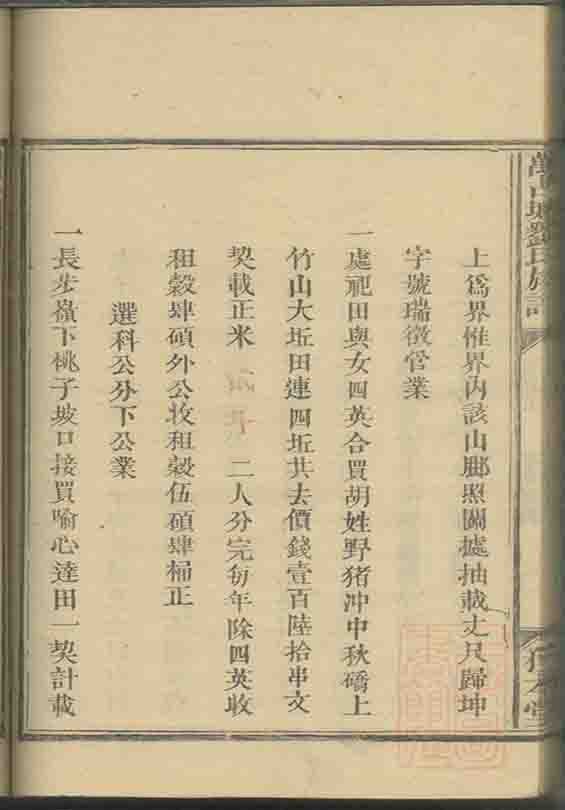 上爲界惟界內該山鬮照鬮據抽載丈尺歸坤
字號瑞徵管業
一處祀田與女四英合買胡姓野猪冲中秋礄上
竹山大坵田連四坵共去價錢壹百陸拾串文
契載正米 二人分完每年除四英收
租穀肆碩外公收租穀伍碩肆桶正
選科公分下公業
一長步嶺下桃子坡口接買喻心達田一契計載